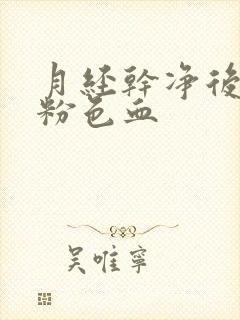 月经幹净後
粉色血
吴唯寧